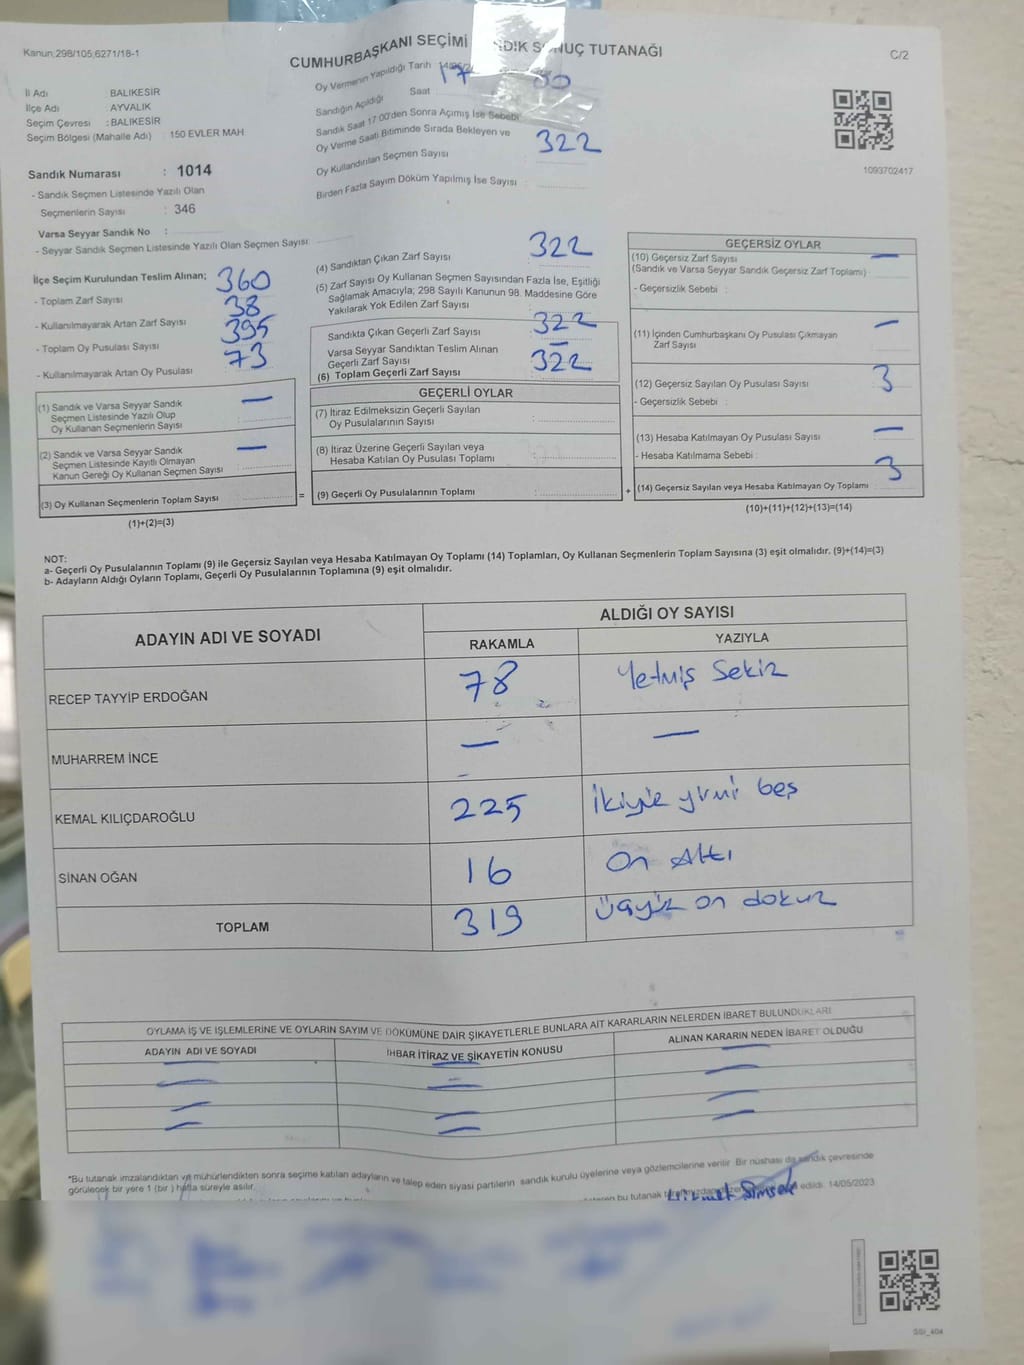 Kanun;298/105,6271/18-1
CUMHURBAŞKANI SEÇİMİ NDIK S NUÇ TUTANAĞI
C/2
İl Adı : BALIKESİR
İlçe Adı : AYVALIK
Seçim Çevresi : BALIKESİR
Seçim Bölgesi (Mahalle Adı) : 150 EVLER MAH
Sandık Numarası : 1014
- Sandık Seçmen Listesinde Yazılı Olan
Seçmenlerin Sayısı : 346
Varsa Seyyar Sandık No :
- Seyyar Sandık Seçmen Listesinde Yazılı Olan Seçmen Sayısı
Oy Vermenin Yapıldığı Tarih
Sandığın Açıldığı Saat 17
Sandık Saat 17:00'den Sonra Açımış İse Sebebi
Oy Verme Saati Bitiminde Sırada Bekleyen ve
Oy Kullandırılan Seçmen Sayısı 322
Birden Fazla Sayım Döküm Yapılmış İse Sayısı :
1093702417
İlçe Seçim Kurulundan Teslim Alınan;
- Toplam Zarf Sayısı 360
- Kullanılmayarak Artan Zarf Sayısı 38
- Toplam Oy Pusulası Sayısı 395
- Kullanılmayarak Artan Oy Pusulası 73
(1) Sandık ve Varsa Seyyar Sandık
Seçmen Listesinde Yazılı Olup
Oy Kullanan Seçmenlerin Sayısı —
(2) Sandık ve Varsa Seyyar Sandık
Seçmen Listesinde Kayıtlı Olmayan
Kanun Gereği Oy Kullanan Seçmen Sayısı —
(3) Oy Kullanan Seçmenlerin Toplam Sayısı
(1)+(2)=(3)
(4) Sandıktan Çıkan Zarf Sayısı 322
(5) Zarf Sayısı Oy Kullanan Seçmen Sayısından Fazla İse, Eşitliği
Sağlamak Amacıyla; 298 Sayılı Kanunun 98. Maddesine Göre
Yakılarak Yok Edilen Zarf Sayısı
Sandıkta Çıkan Geçerli Zarf Sayısı 322
Varsa Seyyar Sandıktan Teslim Alınan
Geçerli Zarf Sayısı —
(6) Toplam Geçerli Zarf Sayısı 322
GEÇERLİ OYLAR
(7) İtiraz Edilmeksizin Geçerli Sayılan
Oy Pusulalarının Sayısı :
(8) İtiraz Üzerine Geçerli Sayılan veya
Hesaba Katılan Oy Pusulası Toplamı :
= (9) Geçerli Oy Pusulalarının Toplamı : +
GEÇERSİZ OYLAR
(10) Geçersiz Zarf Sayısı —
(Sandık ve Varsa Seyyar Sandık Geçersiz Zarf Toplamı)
- Geçersizlik Sebebi :
(11) İçinden Cumhurbaşkanı Oy Pusulası Çıkmayan
Zarf Sayısı —
(12) Geçersiz Sayılan Oy Pusulası Sayısı 3
- Geçersizlik Sebebi :
(13) Hesaba Katılmayan Oy Pusulası Sayısı —
- Hesaba Katılmama Sebebi :
(14) Geçersiz Sayılan veya Hesaba Katılmayan Oy Toplamı 3
(10)+(11)+(12)+(13)=(14)
NOT:
a- Geçerli Oy Pusulalarının Toplamı (9) ile Geçersiz Sayılan veya Hesaba Katılmayan Oy Toplamı (14) Toplamları, Oy Kullanan Seçmenlerin Toplam Sayısına (3) eşit olmalıdır. (9)+(14)=(3)
b- Adayların Aldığı Oyların Toplamı, Geçerli Oy Pusulalarının Toplamına (9) eşit olmalıdır.
ADAYIN ADI VE SOYADI
ALDIĞI OY SAYISI
RAKAMLA YAZIYLA
RECEP TAYYİP ERDOĞAN 78 Yetmiş Sekiz
MUHARREM İNCE — —
KEMAL KILIÇDAROĞLU 225 ikiyüz yirmi beş
SİNAN OĞAN 16 on Altı
TOPLAM 319 üçyüz on dokuz
OYLAMA İŞ VE İŞLEMLERİNE VE OYLARIN SAYIM VE DÖKÜMÜNE DAİR ŞİKAYETLERLE BUNLARA AİT KARARLARIN NELERDEN İBARET BULUNDUKLARI
ADAYIN ADI VE SOYADI İHBAR İTİRAZ VE ŞİKAYETİN KONUSU ALINAN KARARIN NEDEN İBARET OLDUĞU
*Bu tutanak imzalandıktan ve mühürlendikten sonra seçime katılan adayların ve talep eden siyasi partilerin sandık kurulu üyelerine veya gözlemcilerine verilir. Bir nüshası da sandık çevresinde
görülecek bir yere 1 (bir) hafta süreyle asılır.
bu tutanak edildi. 14/05/2023
GSI_404